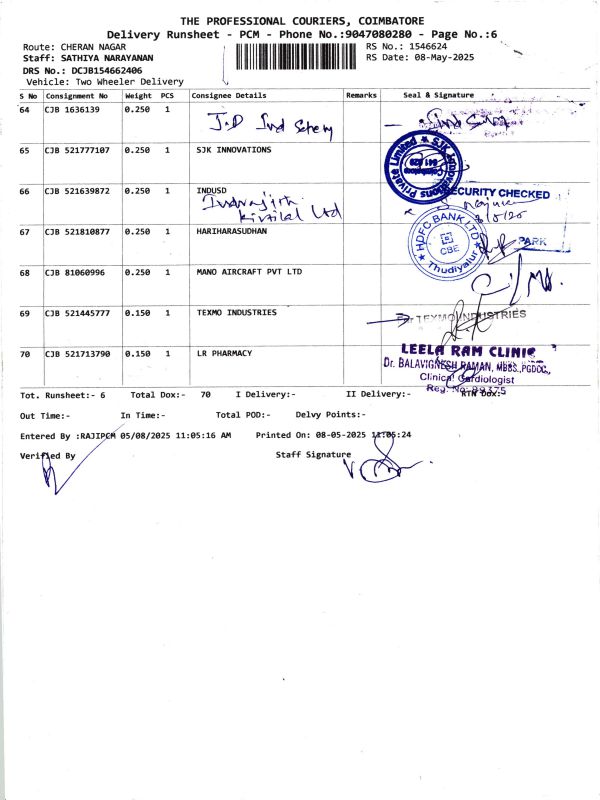 THE PROFESSIONAL COURIERS, COIMBATORE
Delivery Runsheet - PCM - Phone No.:9047080280 - Page No.:6
Route: CHERAN NAGAR
RS No.: 1546624
Staff: SATHIYA NARAYANAN
RS Date: 08-May-2025
DRS No.: DCJB154662406
Vehicle: Two Wheeler Delivery
S No Consignment No Weight PCS Consignee Details Remarks Seal & Signature
64 CJB 1636139 0.250 1
J.D Ind
65 CJB 521777107 0.250 1 SJK INNOVATIONS
SJK Innovations Private Limited
Coimbatore
641 029
66 CJB 521639872 0.250 1 INDUSD
SECURITY CHECKED
Kirtilal Ltd
8/5/25
67 CJB 521810877 0.250 1 HARIHARASUDHAN
HDFC BANK LTD
CBE
Thudiyalur
PARK
68 CJB 81060996 0.250 1 MANO AIRCRAFT PVT LTD
69 CJB 521445777 0.150 1 TEXMO INDUSTRIES
For TEXMO INDUSTRIES
70 CJB 521713790 0.150 1 LR PHARMACY
LEELA RAM CLINIC
Dr. BALAVIGNESH RAMAN, MBBS.,PGDCC.,
Clinical Cardiologist
Reg. No:
Tot. Runsheet:- 6 Total Dox:- 70 I Delivery:- II Delivery:- RTN Dox:-
Out Time:- In Time:- Total POD:- Delvy Points:-
Entered By :RAJIPCM 05/08/2025 11:05:16 AM Printed On: 08-05-2025 11:05:24
Verified By Staff Signature